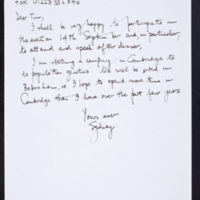 Fax 01223 33 6 846
Dear Tim,
I shall be very happy to participate in
the event on 14th September and, in particular,
to attend and speak after dinner.
I am starting a company in Cambridge to
do population genetics. We will be sited in
Babraham, so I hope to spend more time in
Cambridge than I have over the past few years
Yours ever
Sydney